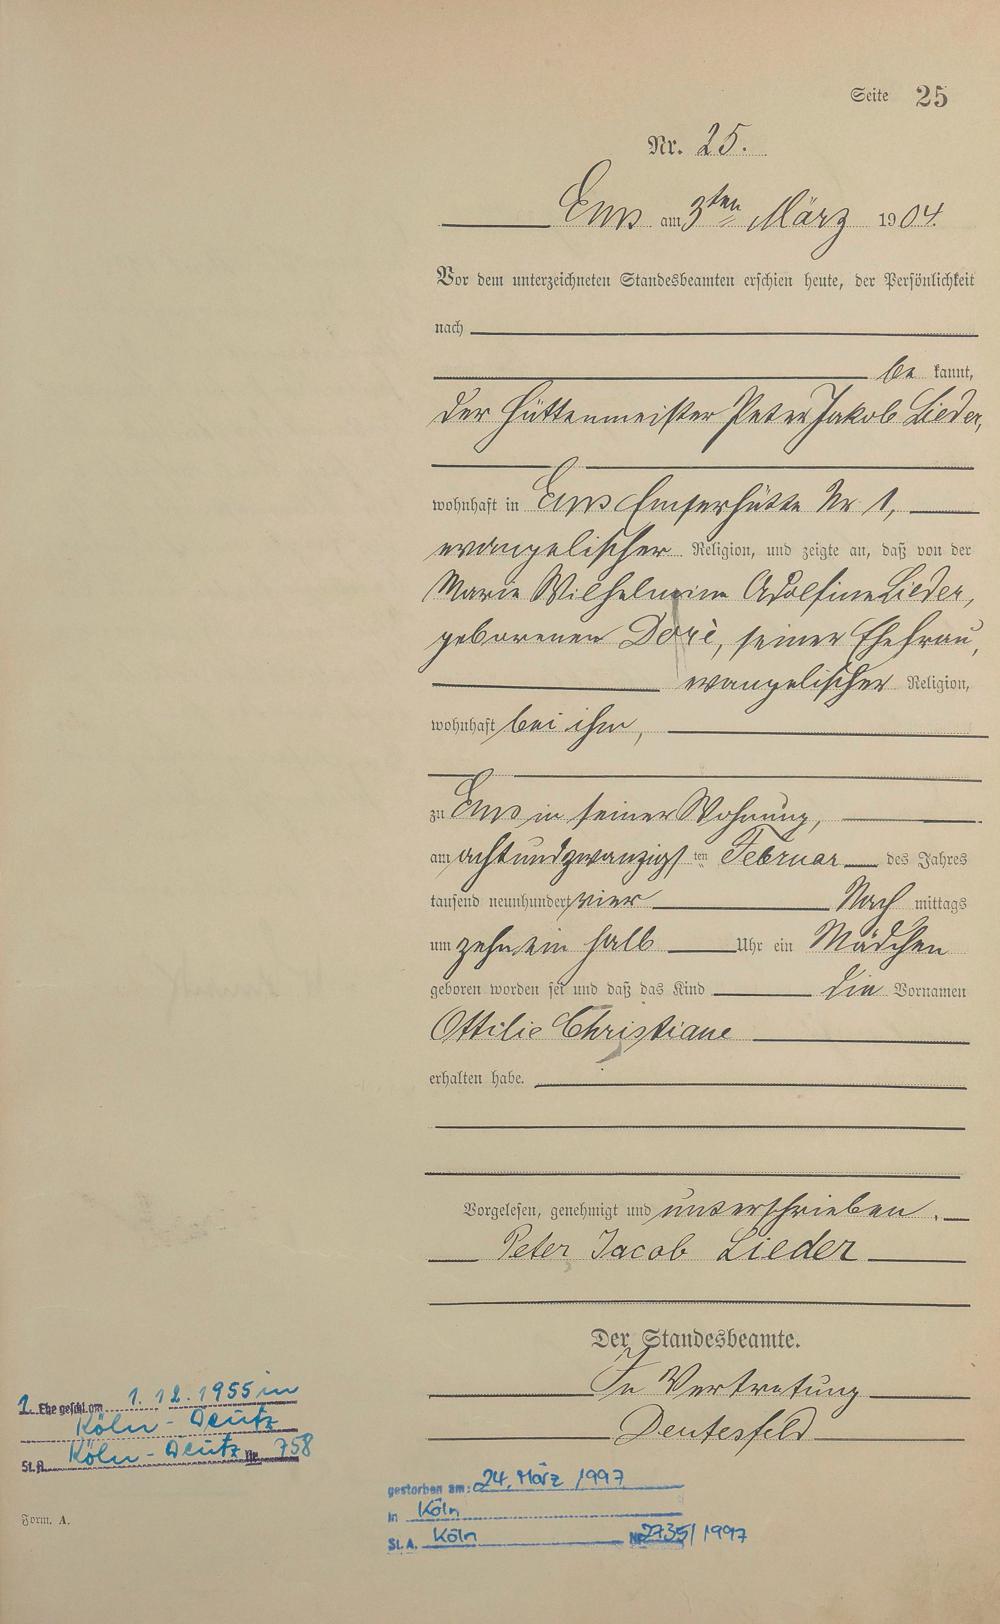 Seite 25
Nr. 25.
Ems am 3ten März 1904.
Vor dem unterzeichneten Standesbeamten erschien heute, der Persönlichkeit
nach
be kannt,
der Hüttenmeister Peter Jakob Lieder,
wohnhaft in Ems Emserhütte Nr 1,
evangelischer Religion, und zeigte an, daß von der
Marie Wilhelmine Adolfine Lieder,
geborenen Dorè, seiner Ehefrau,
evangelischer Religion,
wohnhaft bei ihm,
zu Ems in seiner Wohnung,
am achtundzwanzigsten Februar des Jahres
tausend neunhundert vier Nach mittags
um zehn ein halb Uhr ein Mädchen
geboren worden sei und daß das Kind die Vornamen
Ottilie Christiane
erhalten habe.
Vorgelesen, genehmigt und unterschrieben.
Peter Jacob Lieder
Der Standesbeamte.
In Vertretung
Deutesfeld
1. Ehe geschl. am 1.12.1955 in
Köln-Deutz
St.A. Köln-Deutz Nr. 758
gestorben am: 24. März 1997
in Köln
St.A. Köln Nr 2735/1997
Form. A.